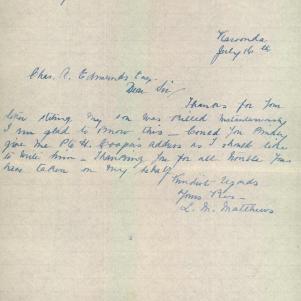 Karoonda
July 16th
Chas. A. Edmunds Esq.
Dear Sir
Thanks for your
letter stating my son was killed instantaneously
I am glad to know this – Could you kindly
give me Pte H. address as I should like
to write him – Thanking you for all trouble you
have taken on my behalf
Kindest Regards
Yours Res–
L. M. Matthews